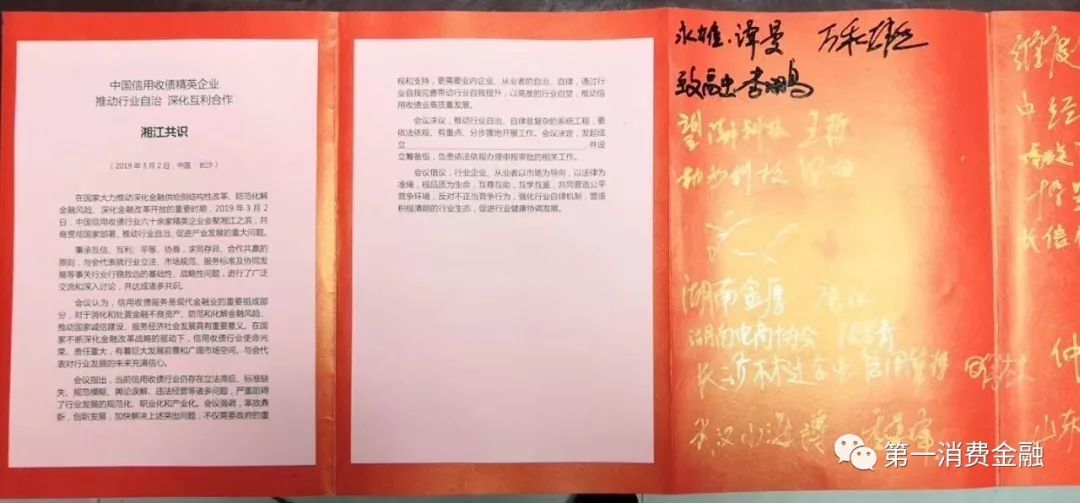 中国信用收债精英企业
推动行业自治 深化互利合作
湘江共识
（2019年3月2日，中国·长沙）
在国家大力推动深化金融供给侧结构性改革、防范化解
金融风险、深化金融改革开放的重要时期，2019年3月2
日，中国信用收债行业六十余家精英企业会聚湘江之滨，共
商贯彻国家部署、推动行业自治、促进产业发展的重大问题。
秉承互信、互利、平等、协商，求同存异、合作共赢的
原则，与会代表就行业立法、市场规范、服务标准及协同发
展等事关行业行稳致远的基础性、战略性问题，进行了广泛
交流和深入讨论，并达成诸多共识。
会议认为，信用收债服务是现代金融业的重要组成部
分，对于消化和处置金融不良资产、防范和化解金融风险、
推动国家诚信建设、服务经济社会发展具有重要意义。在国
家不断深化金融改革战略的驱动下，信用收债行业使命光
荣、责任重大，有着巨大发展前景和广阔市场空间。与会代
表对行业发展的未来充满信心。
会议指出，当前信用收债行业仍存在立法滞后、标准缺
失、规范模糊、舆论误解、违法经营等诸多问题，严重阻碍
了行业发展的规范化、职业化和产业化。会议强调，革故鼎
新，创新发展，加快解决上述突出问题，不仅需要政府的重
视和支持，更需要业内企业、从业者的自治、自律，通过行
业自我完善带动行业自我提升，以高度的行业自觉，推动信
用收债业高质量发展。
会议决议，推动行业自治、自律是复杂的系统工程，要
依法依规、有重点、分步骤地开展工作。会议决定，发起成
立，并设
立筹备组，负责依法依规办理申报审批的相关工作。
会议倡议，行业企业、从业者以市场为导向，以法律为
准绳，视品质为生命，互尊互助，互学互鉴，共同营造公平
竞争环境，反对不正当竞争行为，强化行业自律机制，营造
积极清朗的行业生态，促进行业健康协调发展。
永雄·谭曼
湖南金厚
湖南电商协会
长信
山东
第一消费金融